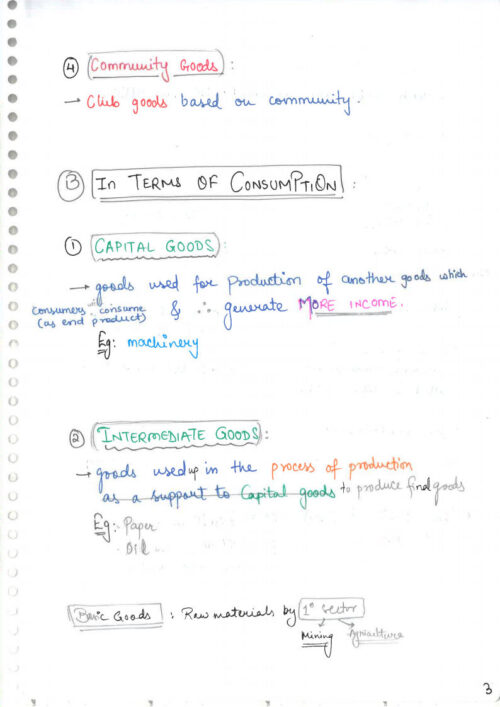 ④ Community Goods :
→ Club goods based on community.
Ⓑ IN TERMS OF CONSUMPTION :
① CAPITAL GOODS :
→ goods used for production of another goods which
consumers will consume (as end product) & ∴ generate MORE INCOME.
Eg: machinery
② INTERMEDIATE GOODS :
→ goods used up in the process of production
as a support to Capital goods to produce final goods
Eg: Paper
. Oil
Basic Goods : Raw materials by 1° Sector
Mining Agriculture
3